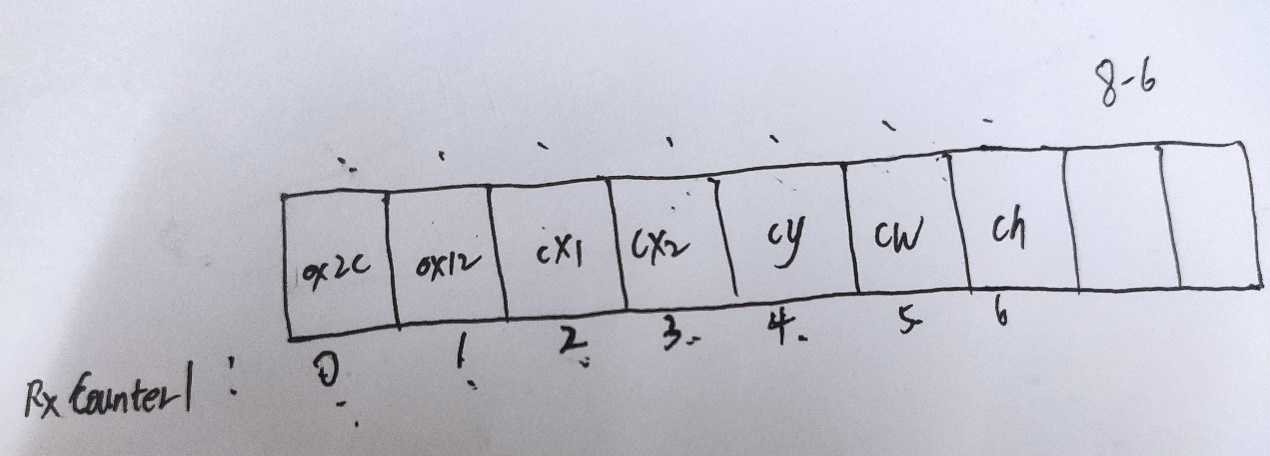 8-6
0x2C 0x12 cx1 cx2 cy cw ch
Rx Counter1 : 0 1 2 3 4 5 6